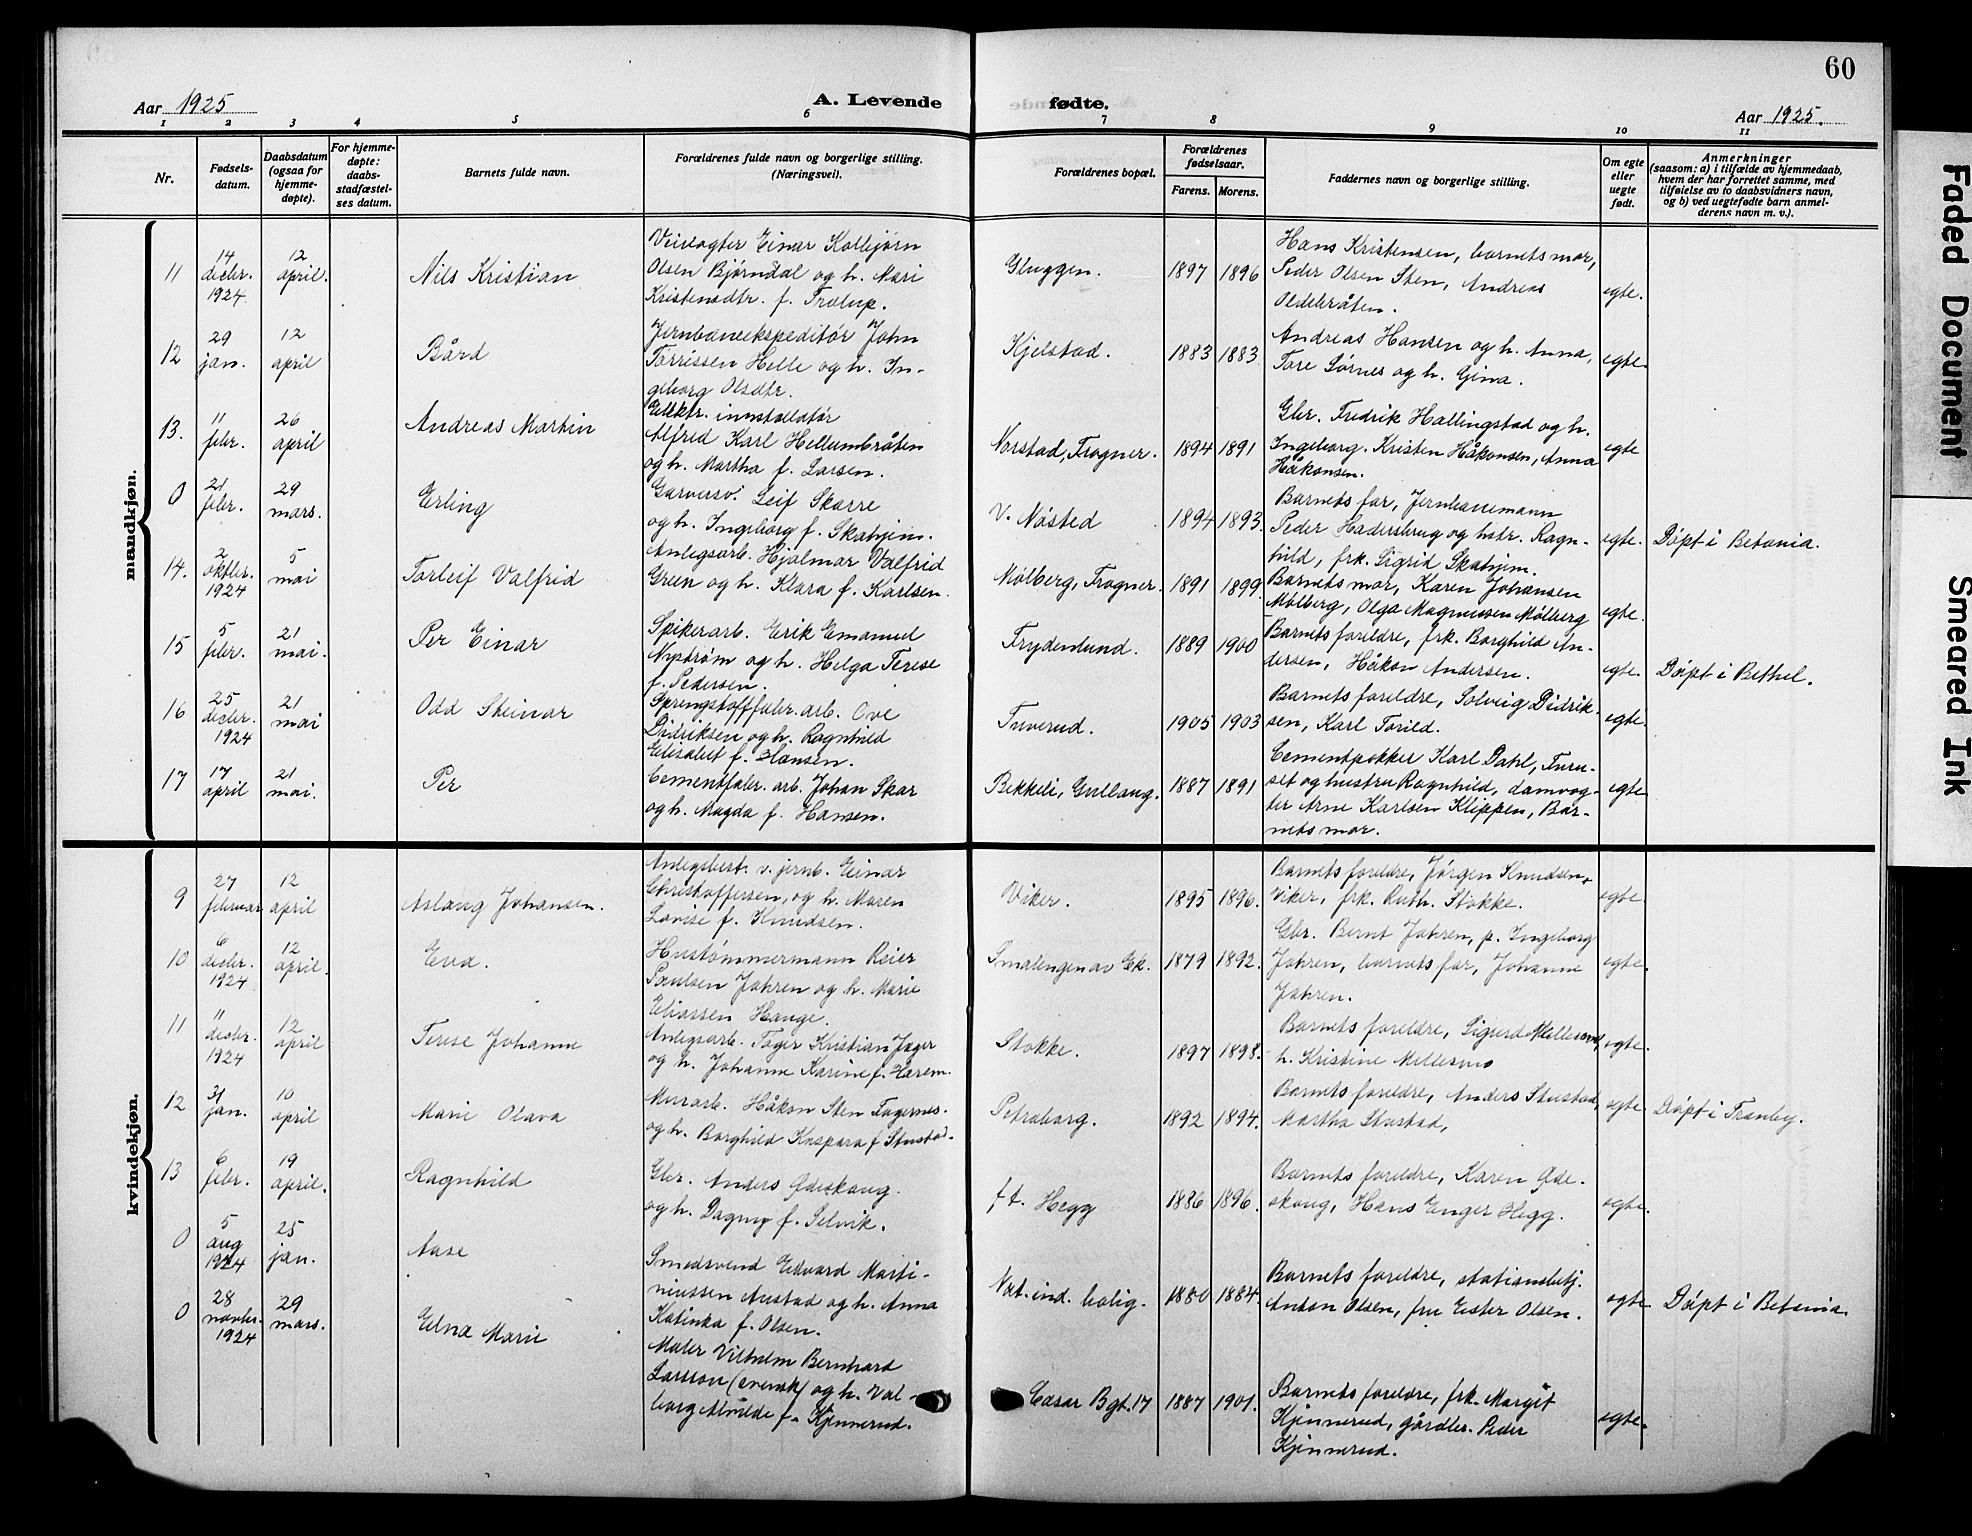 60
Aar 1925
A. Levende
fødte.
Aar 1925.
1 2 3 4 5 6 7 8 9 10 11
Nr.
Fødsels-
datum.
Daabsdatum
(ogsaa for
hjemme-
døpte).
For hjemme-
døpte:
daabs-
stadfæstel-
ses datum.
Barnets fulde navn.
Forældrenes fulde navn og borgerlige stilling.
(Næringsvei).
Forældrenes bopæl.
Forældrenes
fødselsaar.
Farens. Morens.
Faddernes navn og borgerlige stilling.
Om egte
eller
uegte
født.
Anmerkninger
(saasom: a) i tilfælde av hjemmedaab,
hvem der har forrettet samme, med
tilføielse av to daabsvidners navn,
og b) ved uegtefødte barn anmel-
derens navn m. v.).
mandkjøn.
11
14
decbr.
1924
12
april.
Nils Kristian
Veivogter Einar Kolbjørn
Olsen Bjørndal og h. Mari
Kristensdtr. f. Trælup.
Gluggen.
1897 1896
Hans Kristensen, barnets mor,
Peder Olsen Sten, Andreas
Oldebråten.
egte.
12
29
jan.
12
april
Bård
Jernbaneekspeditør John
Torrissen Helle og h. In-
geborg Olsdtr.
Kjelstad.
1883 1883
Andreas Hansen og h. Anna,
Tore Sørnes og h. Gina.
egte.
13.
11
febr.
26
april
Andreas Martin
Elektr. innstallatør
Alfred Karl Hellumbråten
og h. Martha f. Larsen.
Norstad, Frogner.
1894 1891
Gbr. Fredrik Hallingstad og h.
Ingeborg. Kristen Håkonsen, Anna
Håkonsen.
egte
0
21
febr.
29
mars.
Erling
Garversv. Leif Skarre
og h. Ingeborg f. Skahjem.
V. Nøsted
1894 1893.
Barnets far, Jernbanemann
Peder Haderslrug og hstr. Ragn-
hild, frk. Sigrid Skahjem.
egte.
Døpt i Betania.
14.
2
oktbr.
1924
5
mai
Torleif Valfrid
Anlegsarb. Hjalmar Valfrid
Green og h. Klara f. Karlsen.
Mølberg, Frogner.
1891 1899
Barnets mor, Karen Johansen
Mølberg, Olga Magnussen Mølberg
egte.
15
5
febr.
21
mai.
Per Einar
Spikerarb. Erik Emanuel
Nystrøm og h. Helga Terese
f. Pedersen.
Frydenlund.
1889 1900
Barnets foreldre, frk. Borghild An-
dersen, Håkon Andersen.
egte.
Døpt i Bethel.
16
25
decbr.
1924
21
mai
Odd Steinar
Sprengstofffabr. arb. Ove
Didriksen og h. Ragnhild
Elisabet f. Hansen.
Tuverud.
1905 1903
Barnets foreldre, Solveig Didrik-
sen, Karl Torild.
egte.
17
17
april
21
mai.
Per
Cementfabr. arb. Johan Skar
og h. Magda f. Hansen.
Bekkeli, Gullaug.
1887 1891
Cementpakker Karl Dahl, Turu-
set og hustru Ragnhild, damvog-
ter Arne Karlsen Klippen, Bar-
nets mor.
egte
kvindekjøn.
9
27
februar
12
april
Aslaug Johansen.
Anlegsbest. v. jernb. Einar
Christoffersen, og h. Maren
Lovise f. Knudsen.
Viker.
1895 1896.
Barnets foreldre, Jørgen Knudsen,
Viker, frk. Ruth. Stokke.
egte
10
6
decbr.
1924
12
april.
Eva.
Hustømmermann Reier
Poulsen Jahren og h. Marie
Eliassen Hauge.
Smalengen av Ek.
1879 1892.
Gbr. Bernt Jahren, p. Ingeborg
Jahren, barnets far, Johanne
Jahren.
egte.
11
11
decbr.
1924
12
april
Terese Johanne
Anlegsarb. Tager Kristian Jæger
og h. Johanne Karine f. Harem.
Stokke.
1897 1898.
Barnets foreldre, Sigurd Millesmo,
h. Kristine Millesmo
egte.
12
31
jan.
10
april
Marie Olava
Murarb. Håkon Sten Fagernes.
og h. Borghild Kaspara f. Stustad.
Petraborg.
1892 1894.
Barnets foreldre, Anders Stustad,
Martha Stustad,
egte.
Døpt i Tranby.
13
6
febr.
19
april.
Ragnhild
Gbr. Anders Ødeskaug.
og h. Dagny f. Selvik.
f.t. Hegg
1886 1896.
Barnets foreldre, Karen Øde-
skaug, Hans Enger Hegg.
egte.
0
5
aug
1924
25
jan.
Aase
Smedsvend Edvard Marti-
niussen Austad og h. Anna
Katinka f. Olsen.
Nat. ind. bolig.
1880 1884.
Barnets foreldre, stationsbetj.
Anton Olsen, fru Ester Olsen.
egte
Døpt i Betania.
0
28
novbr.
1924
29
mars.
Edna Marie
Maler Vilhelm Bernhard
Larsson (svensk) og h. Val-
borg Alvilde f. Kjinnerud.
Cæsar Bgt. 17
1887 1901.
Barnets foreldre, frk. Margit
Kjinnerud, gårdbr. Peder
Kjinnerud.
egte.
Faded Document
Smeared Ink